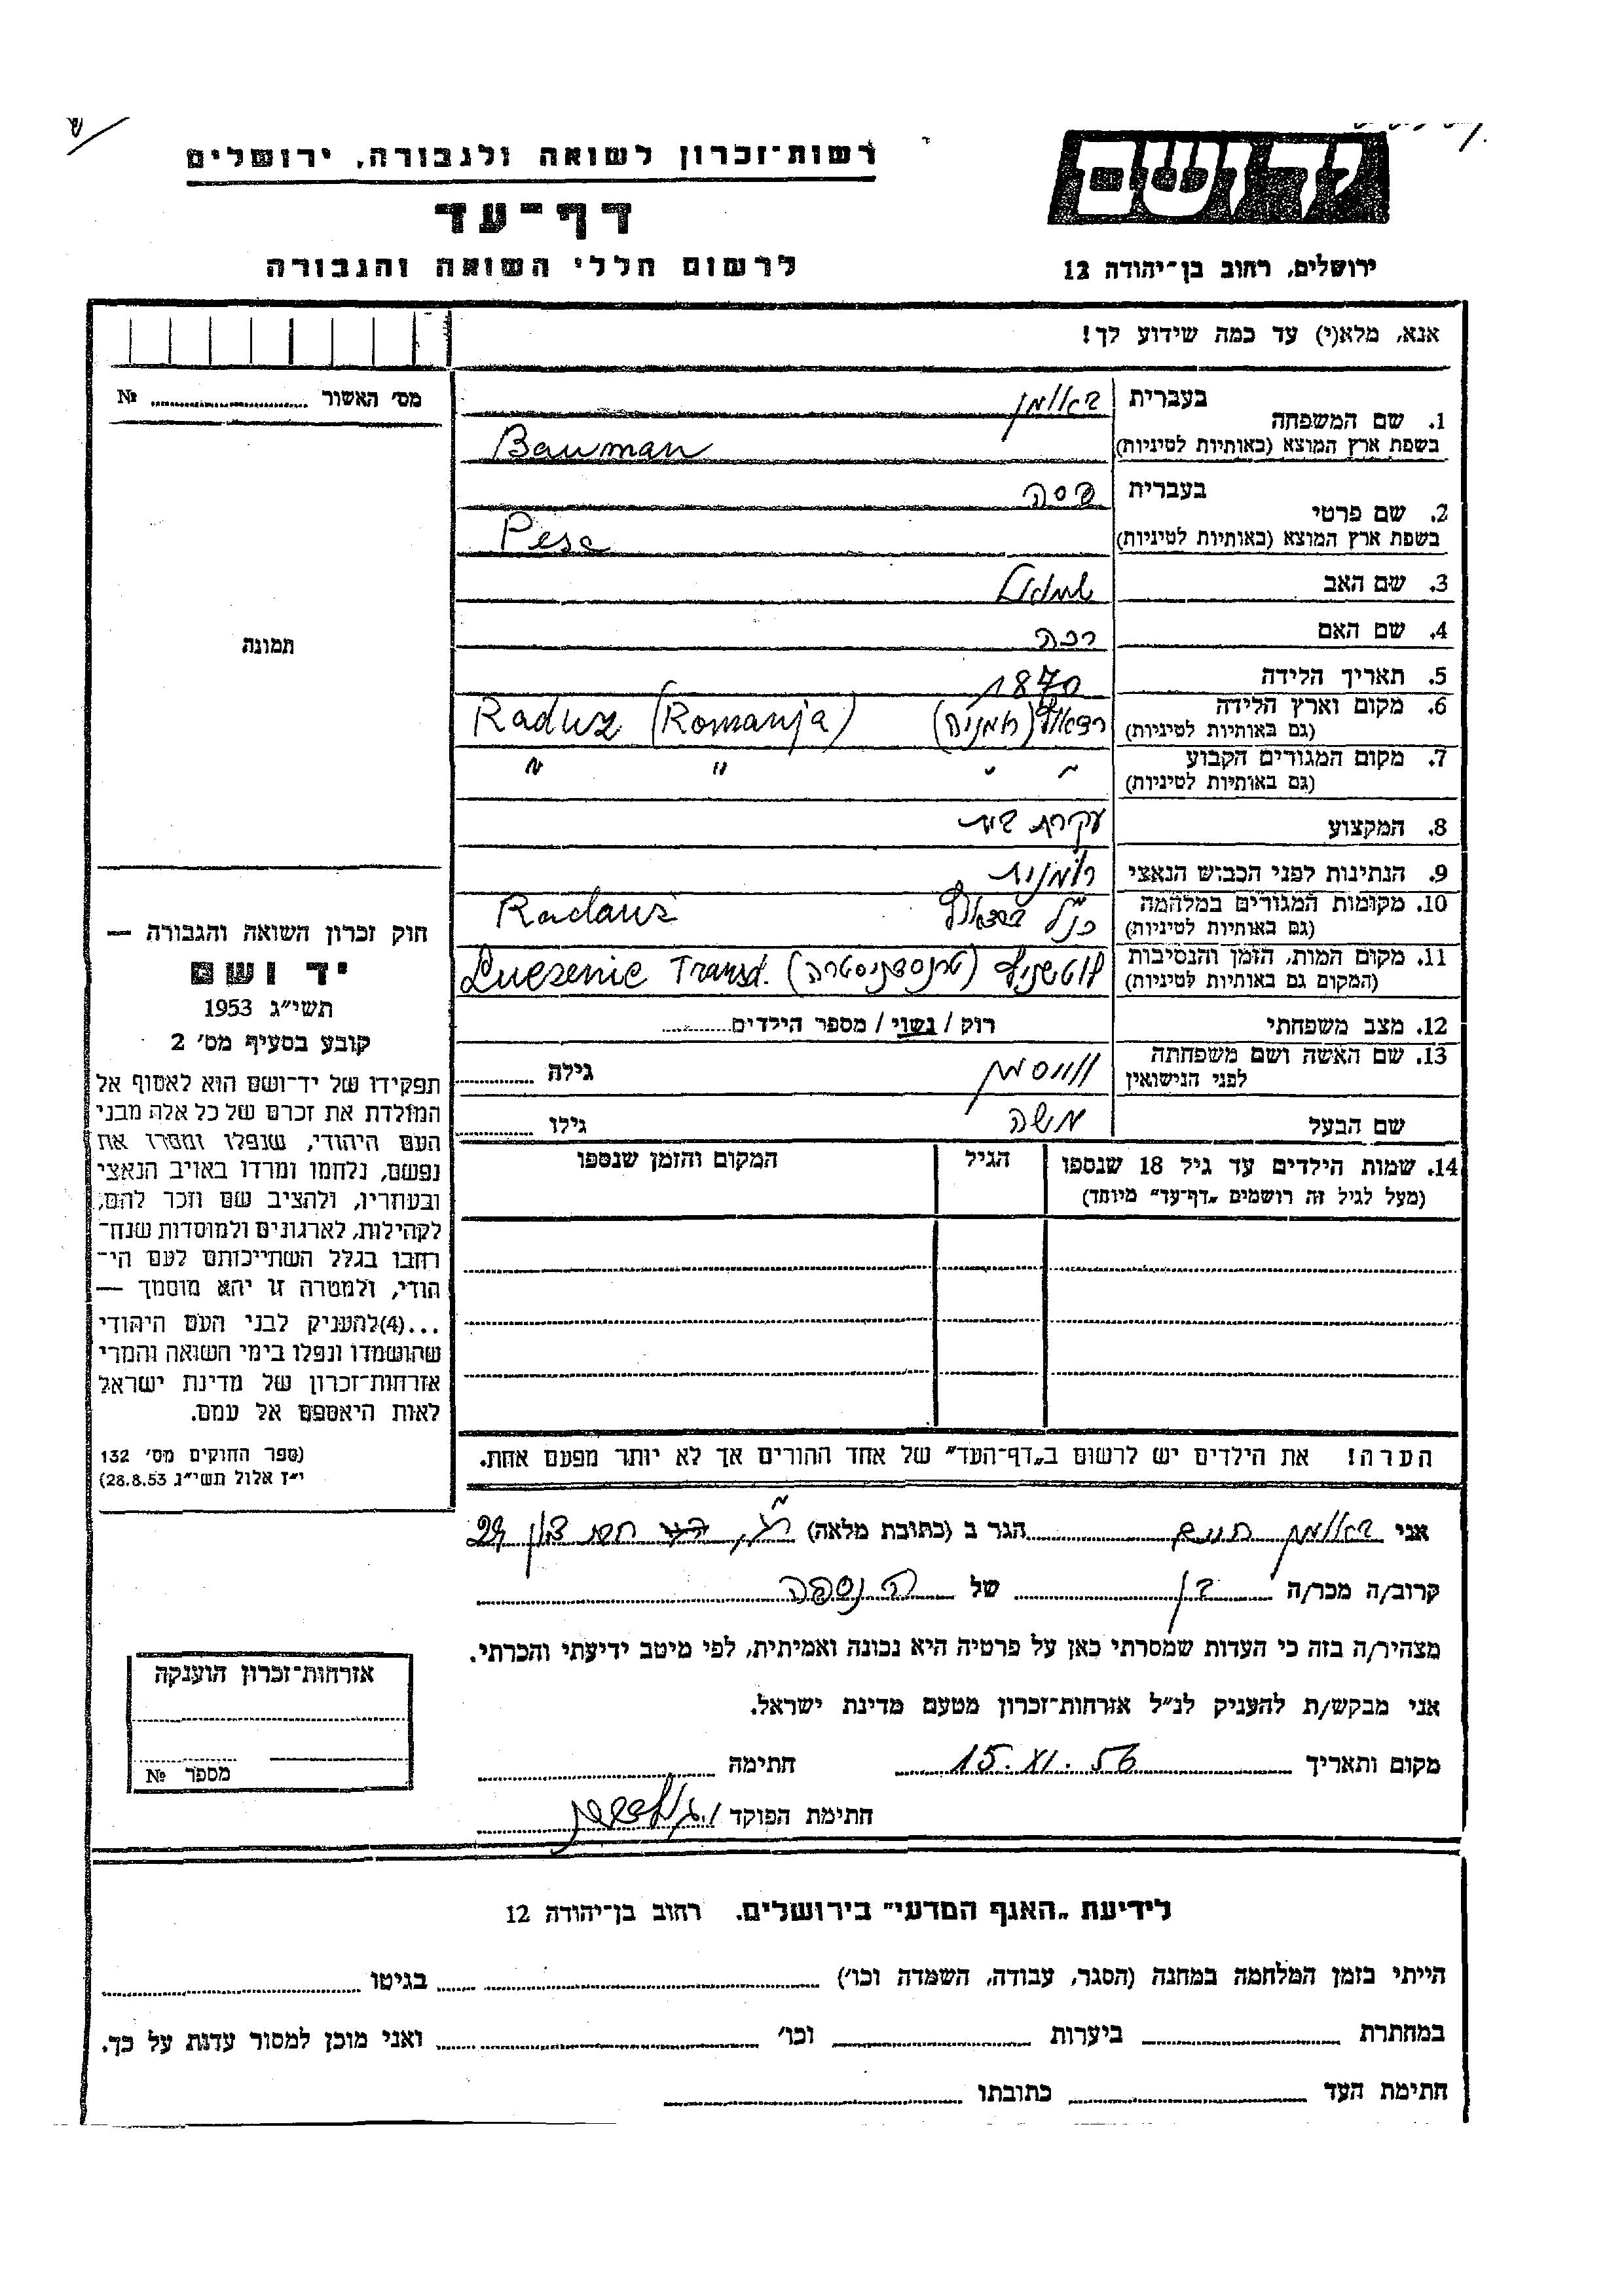 רשות־זכרון לשואה ולגבורה, ירושלים
יד ושם
דף־עד
לרשום חללי השואה והגבורה
ירושלים, רחוב בן־יהודה 12
אנא, מלא(י) עד כמה שידוע לך!
מס׳ האשור № 
תמונה
1. שם המשפחה בעברית באומן
בשפת ארץ המוצא (באותיות לטיניות) Bauman
2. שם פרטי בעברית פסה
בשפת ארץ המוצא (באותיות לטיניות) Pesa
3. שם האב שמואל
4. שם האם רבקה
5. תאריך הלידה 1870
6. מקום וארץ הלידה (גם באותיות לטיניות) (רומניה) Radusz (Romanja)
7. מקום המגורים הקבוע (גם באותיות לטיניות) " " " "
8. המקצוע עקרת בית
9. הנתינות לפני הכבוש הנאצי רומנית
10. מקומות המגורים במלחמה (גם באותיות לטיניות) כנ"ל Radausz
11. מקום המות, הזמן והנסיבות (המקום גם באותיות לטיניות) (טרנסדניסטרה) Luczenic Transd.
12. מצב משפחתי רוק / נשוי / מספר הילדים
13. שם האשה ושם משפחתה לפני הנישואין ווייסמן גילה
שם הבעל משה גילו
14. שמות הילדים עד גיל 18 שנספו הגיל המקום והזמן שנספו
(מעל לגיל זה רושמים „דף־עד” מיוחד)
הערה! את הילדים יש לרשום ב„דף־העד” של אחד ההורים אך לא יותר מפעם אחת.
חוק זכרון השואה והגבורה —
יד ושם
תשי״ג 1953
קובע בסעיף מס׳ 2
תפקידו של יד־ושם הוא לאסוף אל
המולדת את זכרם של כל אלה מבני
העם היהודי, שנפלו ומסרו את
נפשם, נלחמו ומרדו באויב הנאצי
ובעוזריו, ולהציב שם וזכר להם,
לקהילות, לארגונים ולמוסדות שנח־
רחבו בגלל השתייכותם לעם הי־
הודי, ולמטרה זו יהא מוסמך —
...(4)להעניק לבני העם היהודי
שהושמדו ונפלו בימי השואה והמרי
אזרחות־זכרון של מדינת ישראל
לאות היאספם אל עמם.
(ספר החוקים מס׳ 132
י״ז אלול תשי״ג 28.8.53)
אני באומן חיים הגר ב (כתובת מלאה) 29
קרוב/ה מכר/ה בן של הנספה
מצהיר/ה בזה כי העדות שמסרתי כאן על פרטיה היא נכונה ואמיתית, לפי מיטב ידיעתי והכרתי.
אני מבקש/ת להעניק לנ״ל אזרחות־זכרון מטעם מדינת ישראל.
מקום ותאריך 15.XI.56 חתימה
חתימת הפוקד
אזרחות־זכרון הוענקה
מספר №
לידיעת „האגף המדעי” בירושלים. רחוב בן־יהודה 12
הייתי בזמן המלחמה במחנה (הסגר, עבודה, השמדה וכו׳) בגיטו
במחתרת ביערות וכו׳ ואני מוכן למסור עדות על כך.
חתימת העד כתובתו